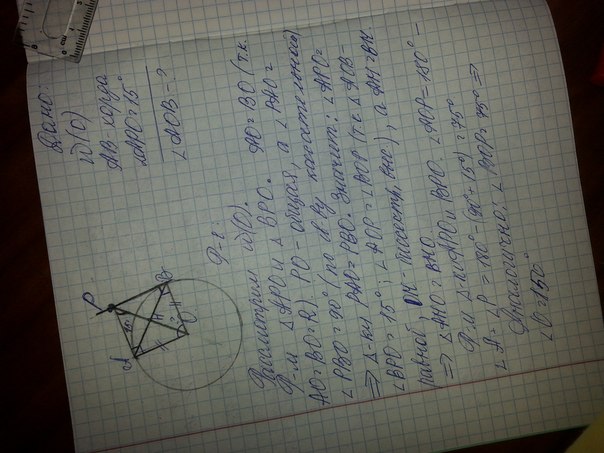 Дано:
ω(O)
AB - хорда
∠APO = 15°
∠AOB - ?
P
A
B
H
O
15°
Р-е:
Рассмотрим ω(O). AO = BO (т.к.
AO = BO = R)
Р-м △APO и △BPO.
PO - общая, а ∠PAO =
∠PBO = 90° (по св-ву касательной)
⇒ △-ки PAO = PBO. Значит: ∠APO =
∠BPO = 15°; ∠AOP = ∠BOP (т.к. ∆AOB -
равноб. OH - биссектр., выс.), а AH = BH
⇒ △AHO = BHO.
Р-м △-ки APO и BPO. ∠AOP = 180° -
∠A - ∠P = 180° - (90° + 15°) = 75°
Аналогично; ∠BOP = 75° ⇒
∠O = 150°